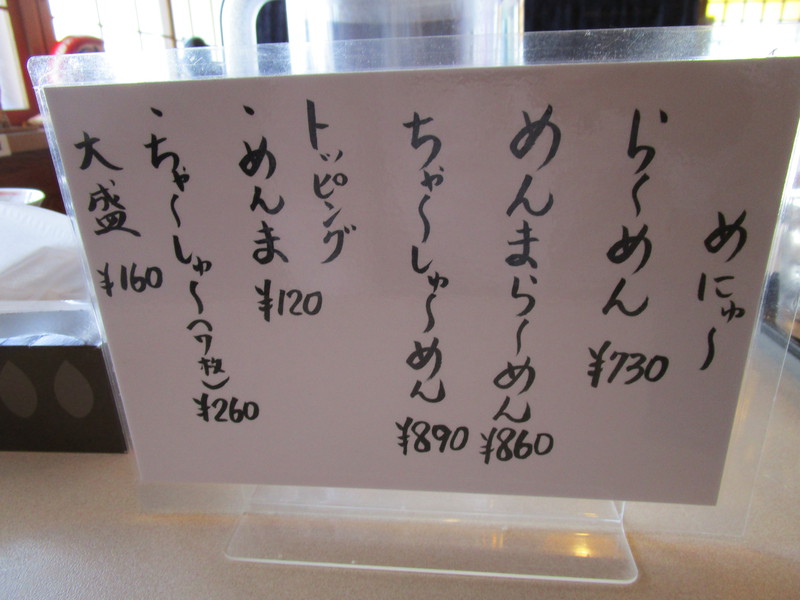 めにゅ〜
ら〜めん
¥730
めんまら〜めん
¥860
ちゃ〜しゅ〜めん
¥890
トッピング
・めんま
¥120
・ちゃ〜しゅ〜(7枚)
¥260
大盛
¥160